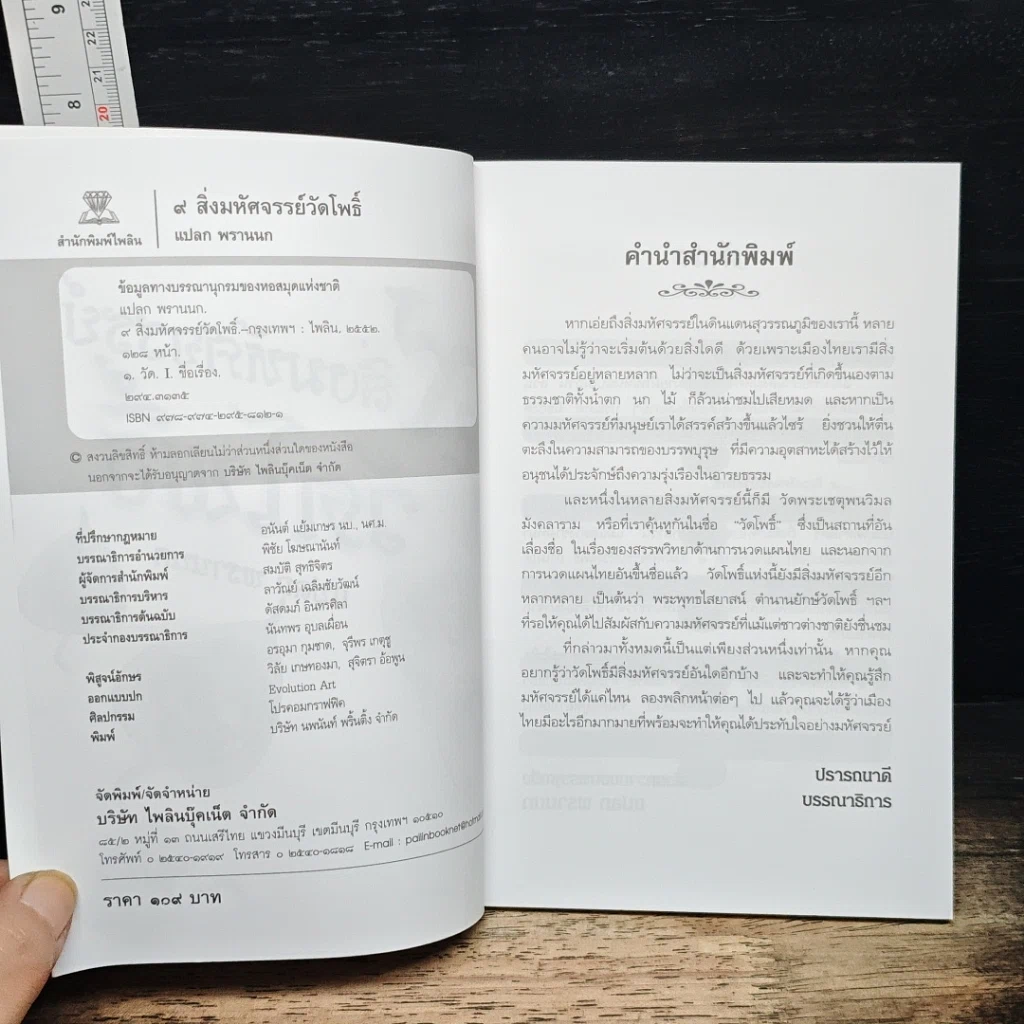 9
8
22
21
20
สำนักพิมพ์ไพลิน
๙ สิ่งมหัศจรรย์วัดโพธิ์
แปลก พรานนก
ข้อมูลทางบรรณานุกรมของหอสมุดแห่งชาติ
แปลก พรานนก.
๙ สิ่งมหัศจรรย์วัดโพธิ์.–กรุงเทพฯ : ไพลิน, ๒๕๕๒.
๑๒๘ หน้า.
๑. วัด. I. ชื่อเรื่อง.
๒๙๔.๓๑๓๕
ISBN ๙๗๘-๙๗๔-๒๙๕-๘๑๒-๑
© สงวนลิขสิทธิ์ ห้ามลอกเลียนไม่ว่าส่วนหนึ่งส่วนใดของหนังสือ
นอกจากจะได้รับอนุญาตจาก บริษัท ไพลินบุ๊คเน็ต จำกัด
ที่ปรึกษากฎหมาย อนันต์ แย้มเกษร นบ., นศ.ม.
บรรณาธิการอำนวยการ พิชัย โฆษณานันท์
ผู้จัดการสำนักพิมพ์ สมบัติ สุทธิจิตร
บรรณาธิการบริหาร ลาวัณย์ เฉลิมชัยวัฒน์
บรรณาธิการต้นฉบับ ดัสดมภ์ อินทรศิลา
ประจำกองบรรณาธิการ นันทพร อุบลเผื่อน
อรอุมา กุมชาด, จุรีพร เกตุชู
พิสูจน์อักษร วิลัย เกษทองมา, สุจิตรา อ้อพูน
ออกแบบปก Evolution Art
ศิลปกรรม โปรคอมกราฟฟิค
พิมพ์ บริษัท นพนันท์ พริ้นติ้ง จำกัด
จัดพิมพ์/จัดจำหน่าย
บริษัท ไพลินบุ๊คเน็ต จำกัด
๘๕/๒ หมู่ที่ ๑๓ ถนนเสรีไทย แขวงมีนบุรี เขตมีนบุรี กรุงเทพฯ ๑๐๕๑๐
โทรศัพท์ ๐ ๒๕๔๐-๑๙๑๙ โทรสาร ๐ ๒๕๔๐-๑๘๑๘ E-mail :
ราคา ๑๐๙ บาท
คำนำสำนักพิมพ์
หากเอ่ยถึงสิ่งมหัศจรรย์ในดินแดนสุวรรณภูมิของเรานี้ หลาย
คนอาจไม่รู้ว่าจะเริ่มต้นด้วยสิ่งใดดี ด้วยเพราะเมืองไทยเรามีสิ่ง
มหัศจรรย์อยู่หลายหลาก ไม่ว่าจะเป็นสิ่งมหัศจรรย์ที่เกิดขึ้นเองตาม
ธรรมชาติทั้งน้ำตก นก ไม้ ก็ล้วนน่าชมไปเสียหมด และหากเป็น
ความมหัศจรรย์ที่มนุษย์เราได้สรรค์สร้างขึ้นแล้วไซร้ ยิ่งชวนให้ตื่น
ตะลึงในความสามารถของบรรพบุรุษ ที่มีความอุตสาหะได้สร้างไว้ให้
อนุชนได้ประจักษ์ถึงความรุ่งเรืองในอารยธรรม
และหนึ่งในหลายสิ่งมหัศจรรย์นี้ก็มี วัดพระเชตุพนวิมล
มังคลาราม หรือที่เราคุ้นหูกันในชื่อ “วัดโพธิ์” ซึ่งเป็นสถานที่อัน
เลื่องชื่อ ในเรื่องของสรรพวิทยาด้านการนวดแผนไทย และนอกจาก
การนวดแผนไทยอันขึ้นชื่อแล้ว วัดโพธิ์แห่งนี้ยังมีสิ่งมหัศจรรย์อีก
หลากหลาย เป็นต้นว่า พระพุทธไสยาสน์ ตำนานยักษ์วัดโพธิ์ ฯลฯ
ที่รอให้คุณได้ไปสัมผัสกับความมหัศจรรย์ที่แม้แต่ชาวต่างชาติยังชื่นชม
ที่กล่าวมาทั้งหมดนี้เป็นแต่เพียงส่วนหนึ่งเท่านั้น หากคุณ
อยากรู้ว่าวัดโพธิ์มีสิ่งมหัศจรรย์อันใดอีกบ้าง และจะทำให้คุณรู้สึก
มหัศจรรย์ได้แค่ไหน ลองพลิกหน้าต่อๆ ไป แล้วคุณจะได้รู้ว่าเมือง
ไทยมีอะไรอีกมากมายที่พร้อมจะทำให้คุณได้ประทับใจอย่างมหัศจรรย์
ปรารถนาดี
บรรณาธิการ